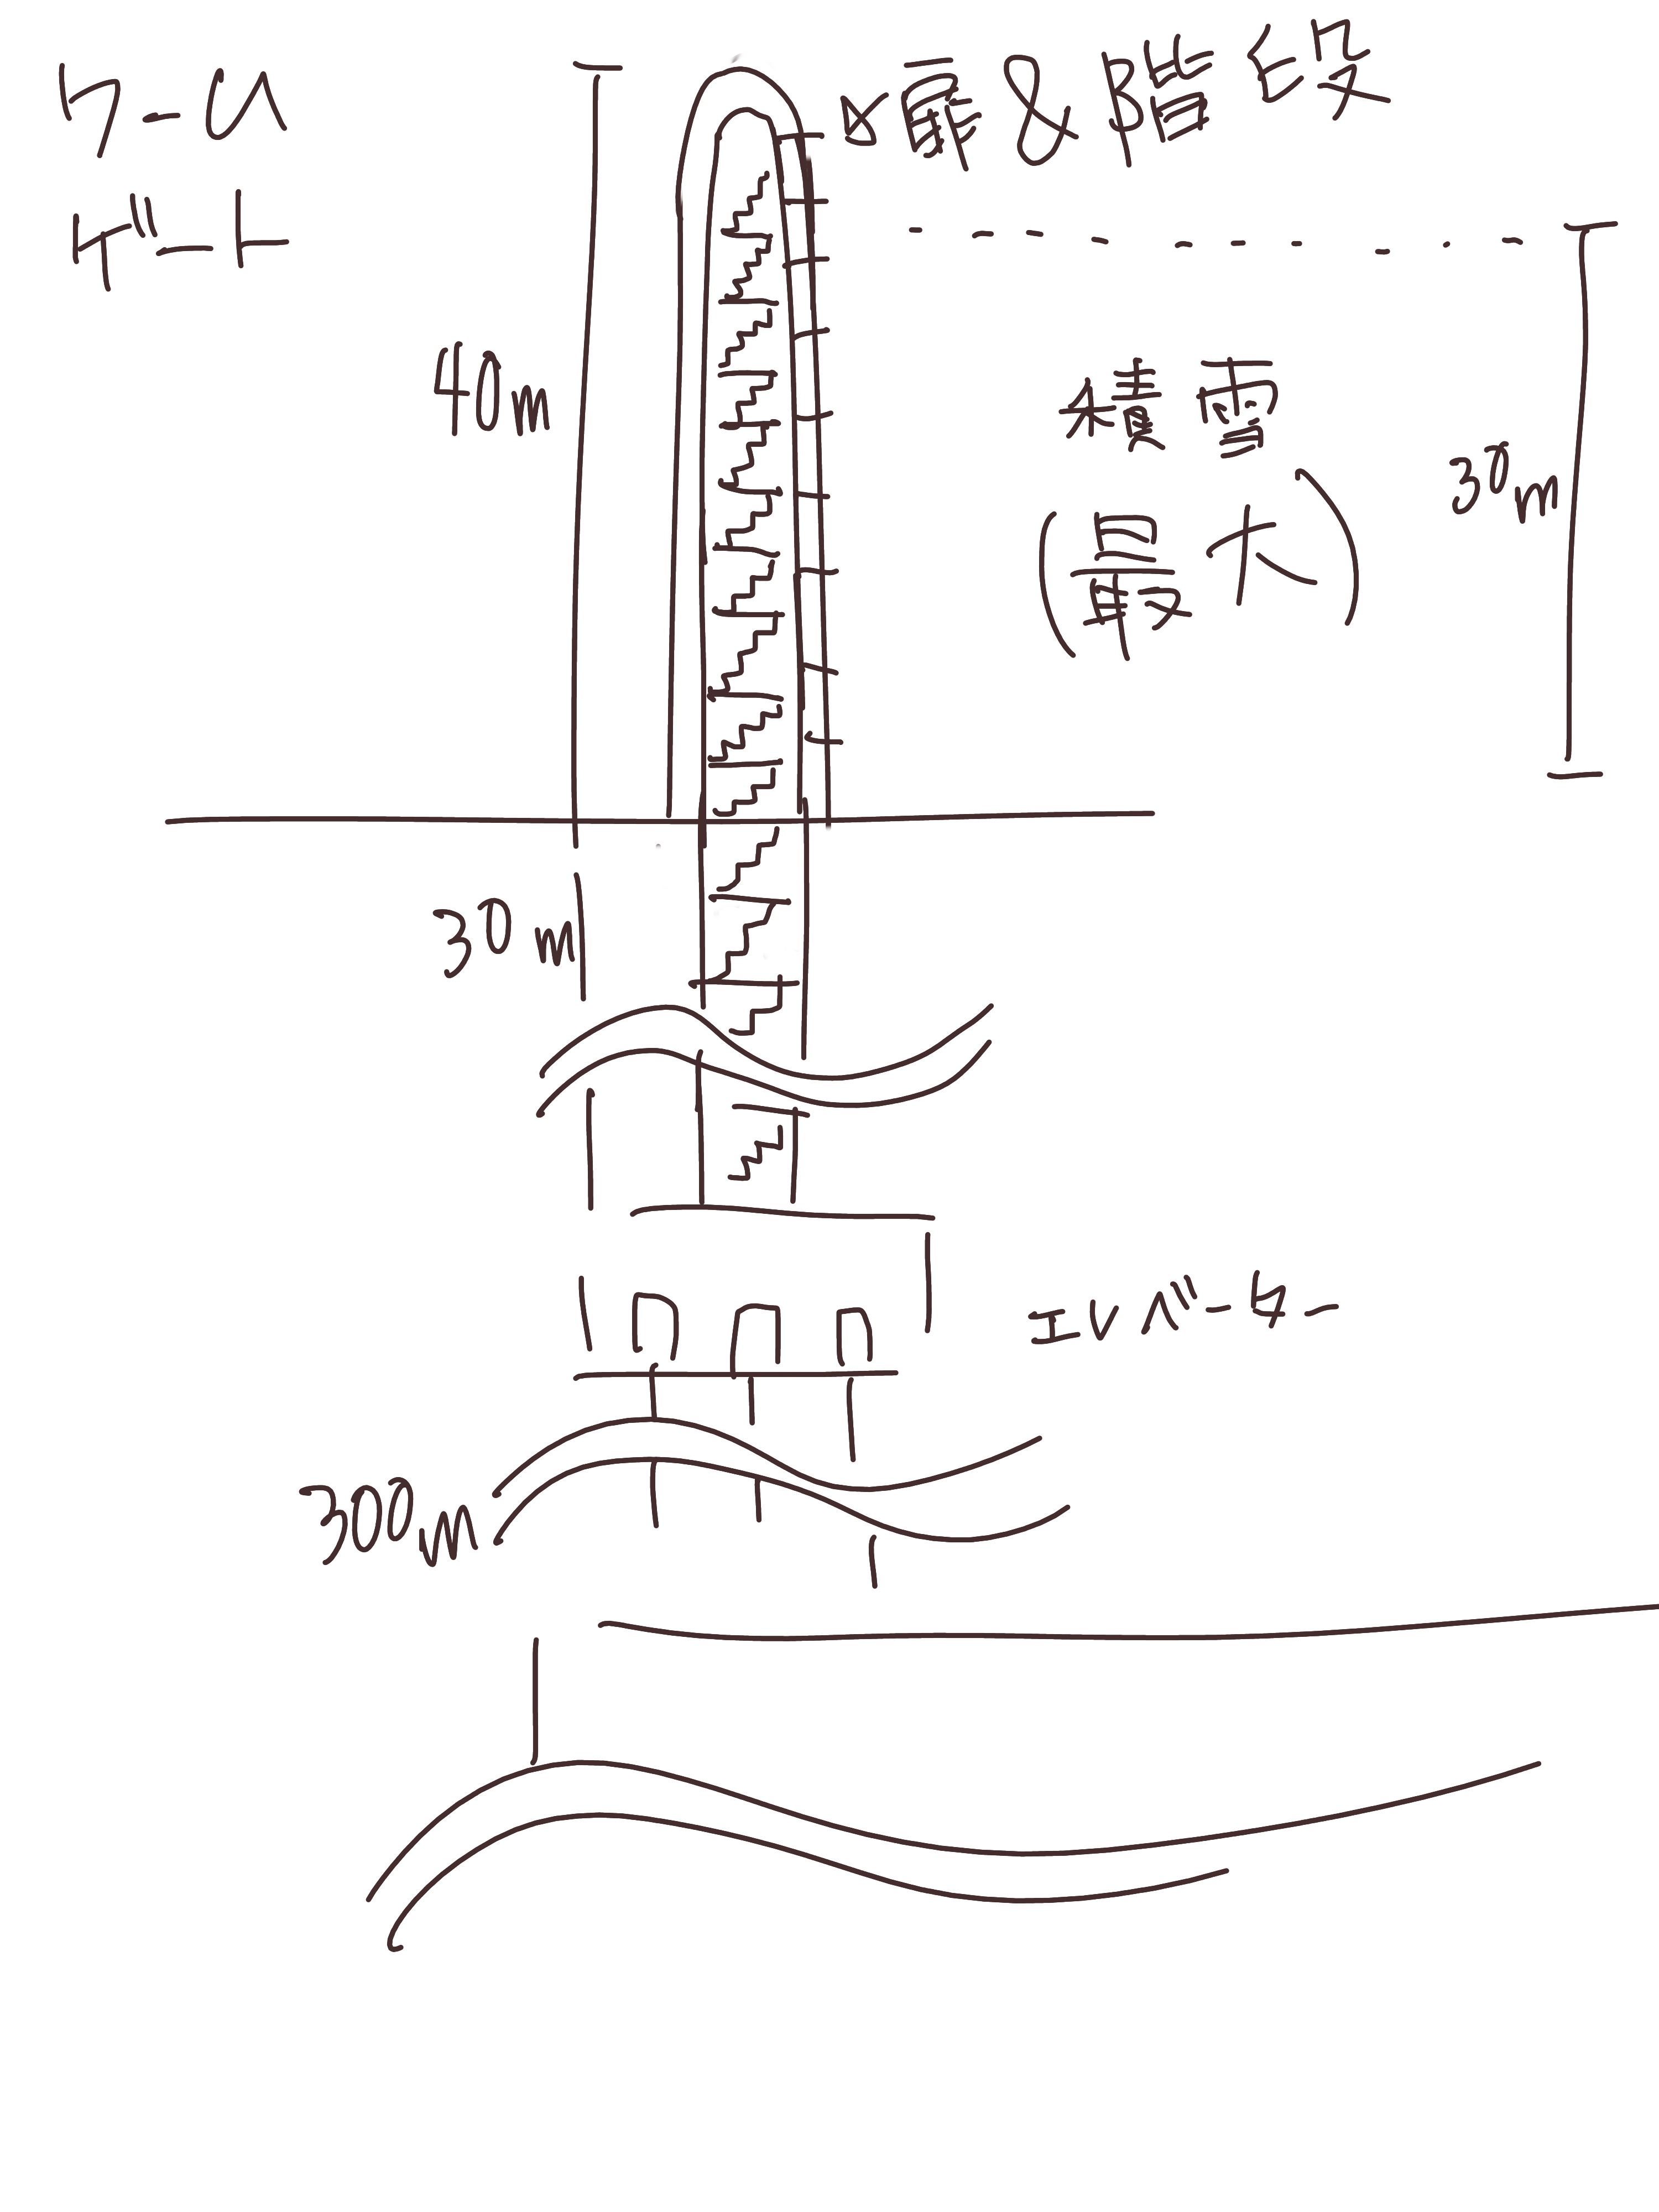 扉&階段
ゲート
40m
積雪
(最大)
30m
30m
エレベーター
300m